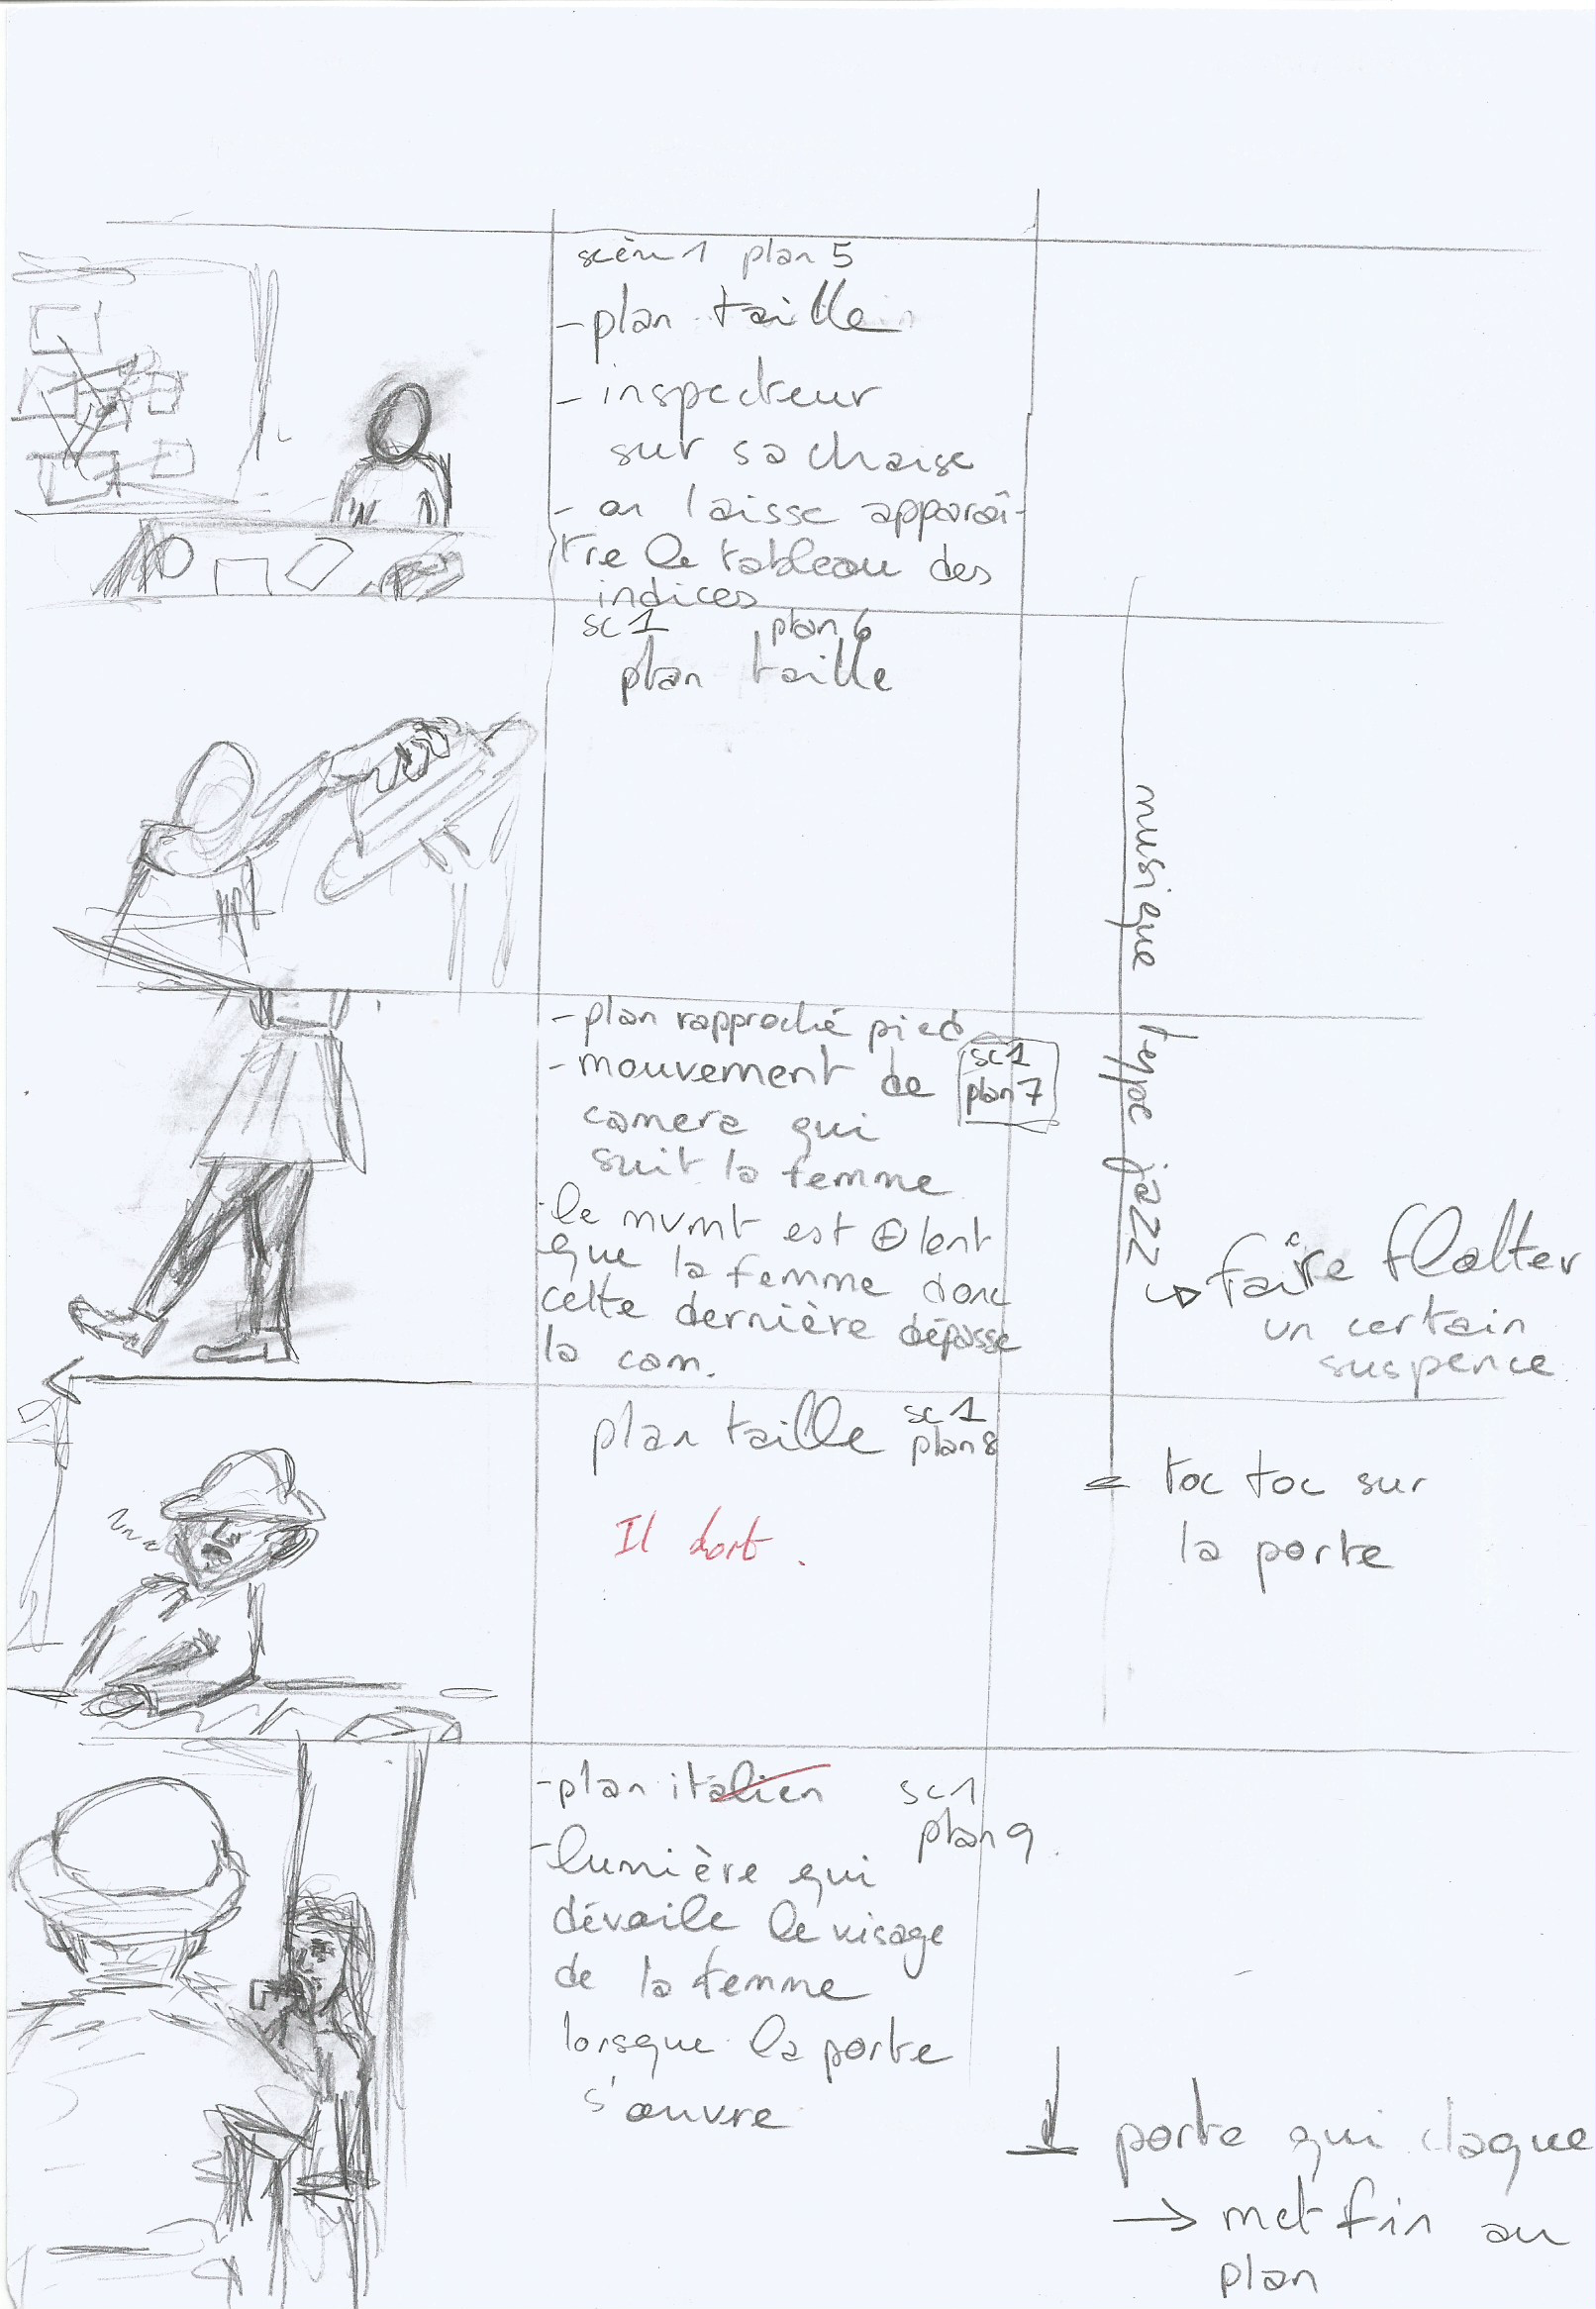 scène 1 plan 5
- plan taille
- inspecteur
sur sa chaise
- on laisse apparaî-
tre le tableau des
indices
sc 1 plan 6
plan taille
musique type jazz
- plan rapproché pied
sc 1
plan 7
- mouvement de
camera qui
suit la femme
- le mvmt est ⊕ lent
que la femme donc
cette dernière dépasse
la cam.
↳ faire flotter
un certain
suspence
plan taille
sc 1
plan 8
Il dort.
toc toc sur
la porte
- plan italien
sc 1
plan 9
- lumière qui
dévoile le visage
de la femme
lorsque la porte
s'ouvre
porte qui claque
→ met fin au
plan